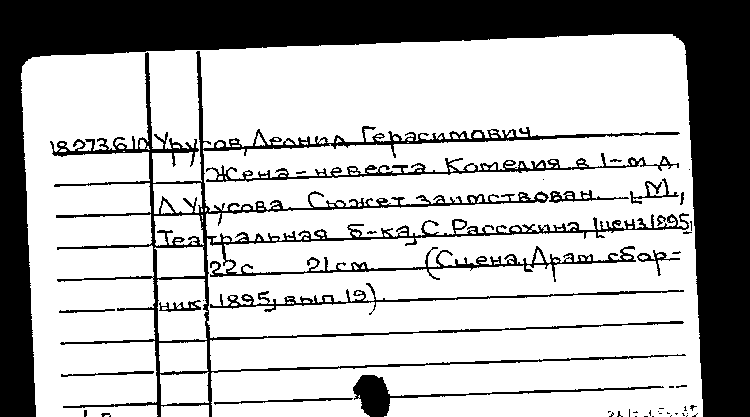 18273610 Урусов, Леонид Герасимович.
Жена-невеста. Комедия в 1-м д.
Л. Урусова. Сюжет заимствован. [М],
Театральная б-ка, С. Рассохина, [ценз 1895]
22с 21см (Сцена, Драм сбор=
ник. 1895, вып. 19).